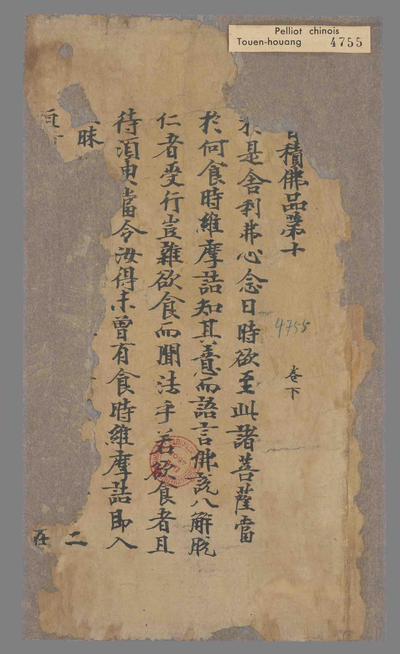 Pelliot chinois
Touen-houang 4755
積佛品第十 卷下
4755
是舍利弗心念日時欲至此諸菩薩當
於何食時維摩詰知其意而語言佛說八解脫
仁者受行豈雜欲食而聞法乎若欲食者且
待須臾當令汝得未曾有食時維摩詰即入
昧 二
在